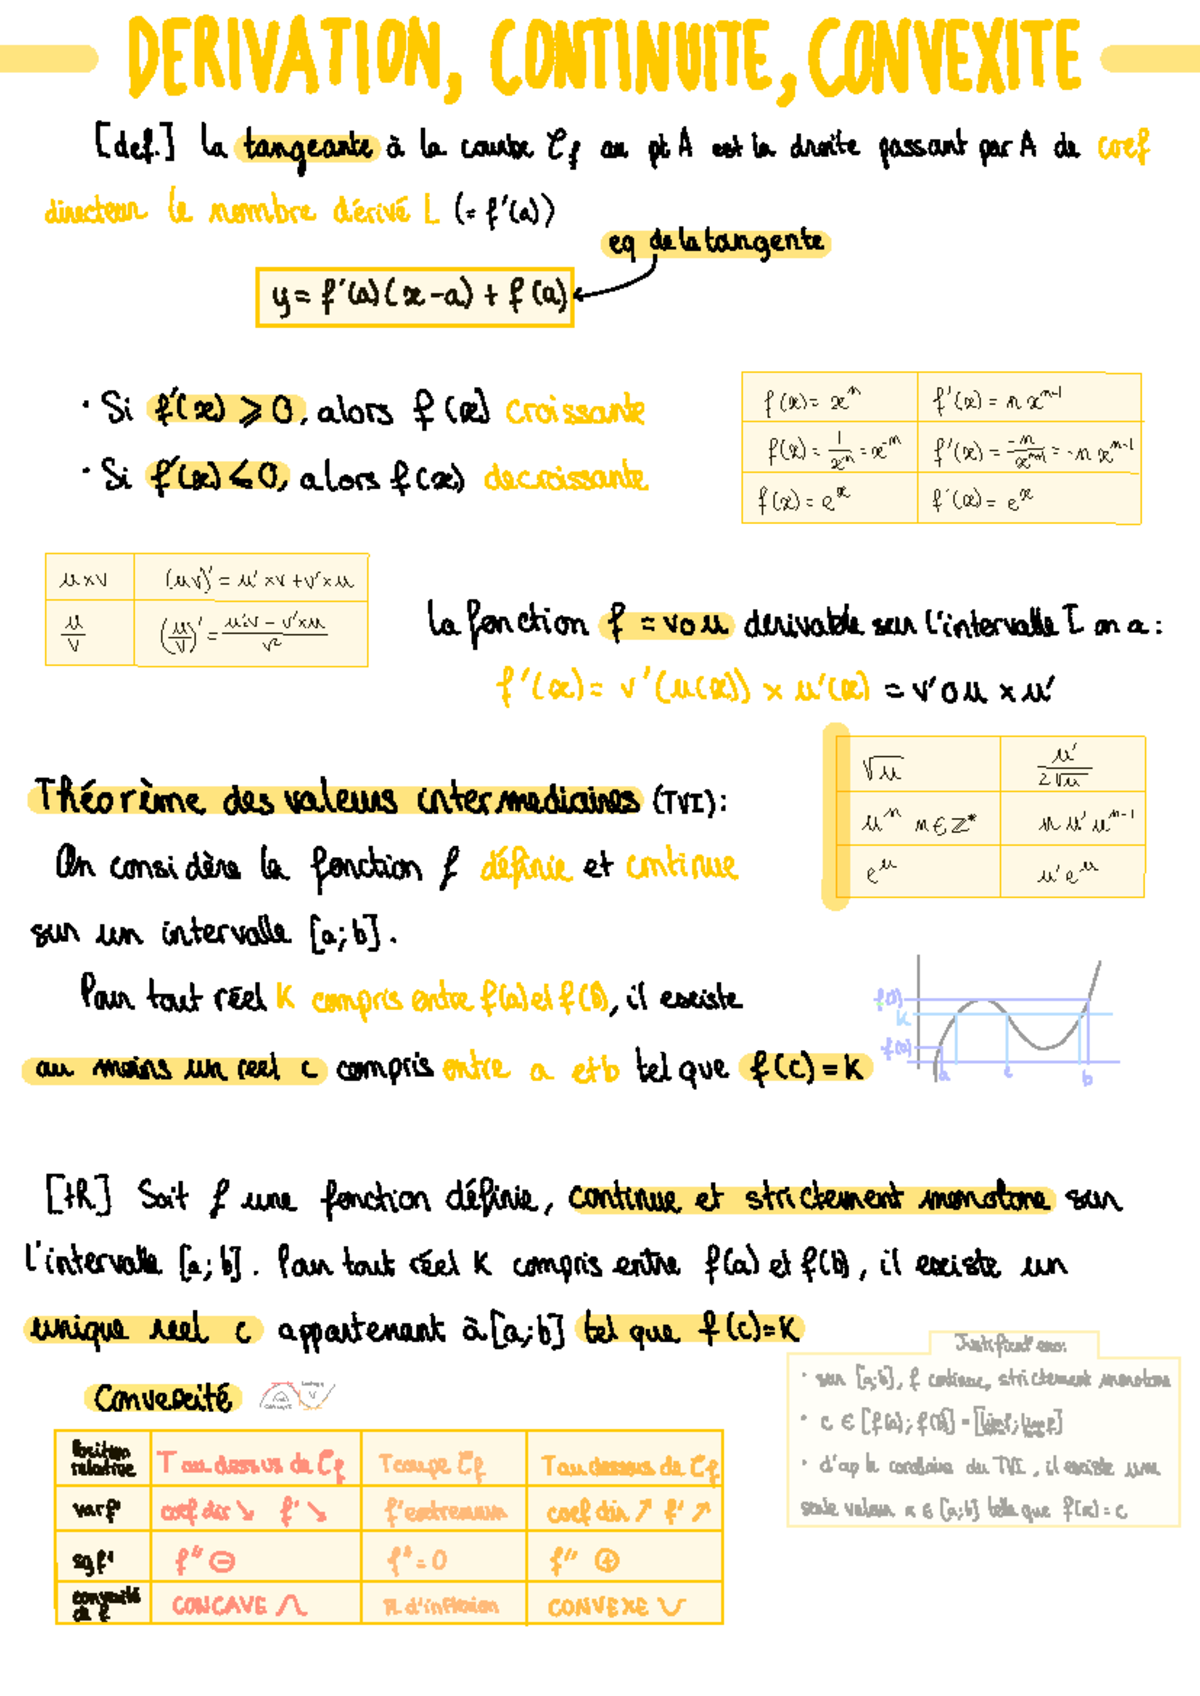 DERIVATION, CONTINUITE, CONVEXITE
[def.] La tangeante à la courbe Cf au pt A est la droite passant par A de coef
directeur le nombre dérivé L (= f'(a))
eq de la tangente
y = f'(a)(x-a) + f(a)
· Si f'(x) ⩾ 0, alors f(x) croissante
· Si f'(x) ⩽ 0, alors f(x) decroissante
f(x) = x^n | f'(x) = n x^{n-1}
f(x) = 1/x^n = x^{-n} | f'(x) = -n/x^{n+1} = -n x^{n-1}
f(x) = e^x | f'(x) = e^x
u×v | (uv)' = u'×v + v'×u
u/v | (u/v)' = (u'v - v'×u)/v²
La fonction f = v o u derivable sur l'intervalle I on a :
f'(x) = v'(u(x)) × u'(x) = v' o u × u'
√u | u'/(2√u)
u^n n∈ℤ* | n u' u^{n-1}
e^u | u' e^u
Théorème des valeurs intermediaires (TVI) :
On considère la fonction f définie et continue
sur un intervalle [a;b].
Pour tout réel K compris entre f(a) et f(b), il existe
au moins un reel c compris entre a et b tel que f(c) = K
f(b)
K
f(a)
a c b
[tR] Soit f une fonction définie, continue et strictement monotone sur
l'intervalle [a;b]. Pour tout réel K compris entre f(a) et f(b), il existe un
unique reel c appartenant à [a;b] tel que f(c)=K
Justificat° exo:
· sur [a;b], f continue, strictement monotone
· c ∈ [f(a); f(b)] =
· d'ap le corollaire du TVI, il existe une
seule valeur x ∈ [a;b] telle que f(x) = c
Convexité
Position relative | T au dessus de Cf | T coupe Cf | T au dessous de Cf
var f' | coef dir ↘ f' ↘ | f' extremum | coef dir ↗ f' ↗
sg f" | f" ⊖ | f" = 0 | f" ⊕
convexité de f | CONCAVE | pt d'inflexion | CONVEXE